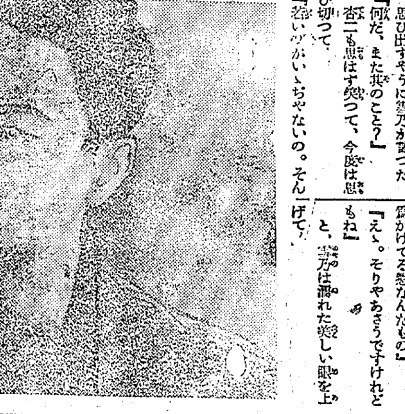 思ひ出すやうに雪乃が云つた
『何だ、また其のこと?』
杏二も思はず笑つて、今度は思
ひ切つて、
『若いのがいゝぢやないの。そん
『えゝ。そりやあさうですけれど
もね』
と、雪乃は濡れた美しい眼を上
げて、